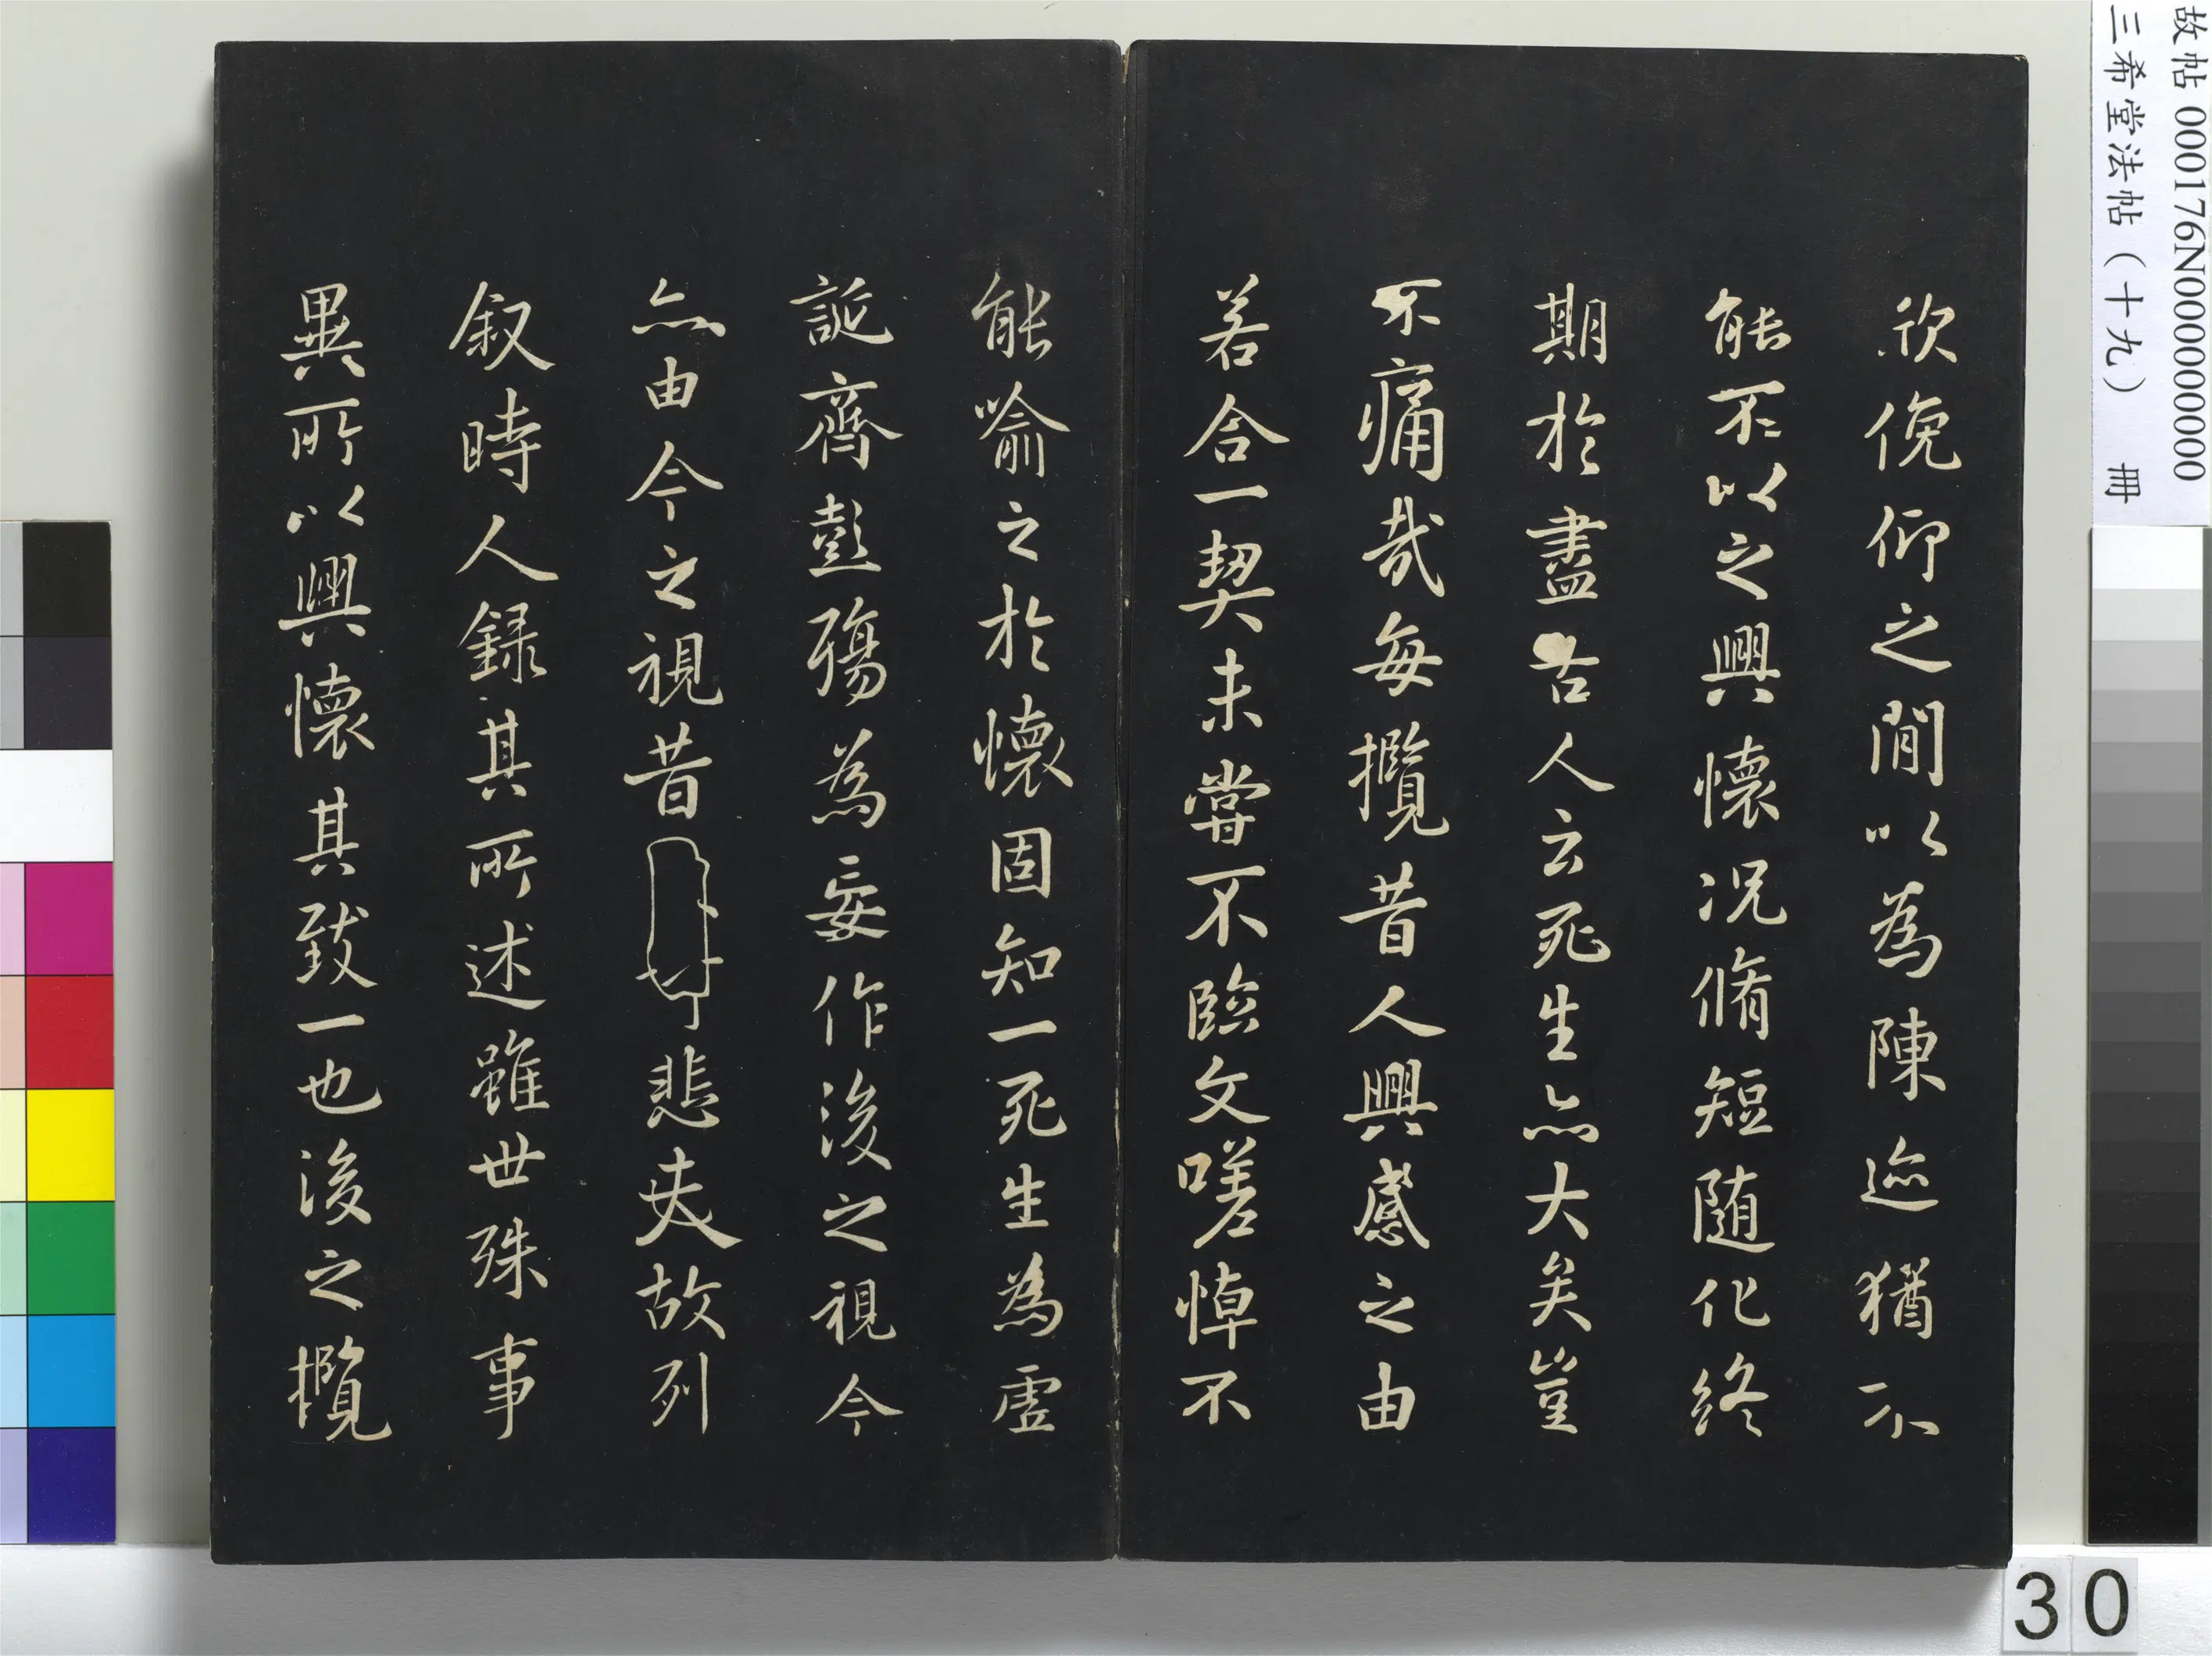 欣俛仰之閒以為陳迹猶不
能不以之興懷况脩短随化終
期於盡古人云死生亦大矣豈
不痛哉每攬昔人興感之由
若合一契未甞不臨文嗟悼不
能喻之於懷固知一死生為虛
誕齊彭殤為妄作後之視今
亦由今之視昔悲夫故列
叙時人録其所述雖世殊事
異所以興懷其致一也後之攬
故帖 000176N000000000
三希堂法帖（十九） 冊
30